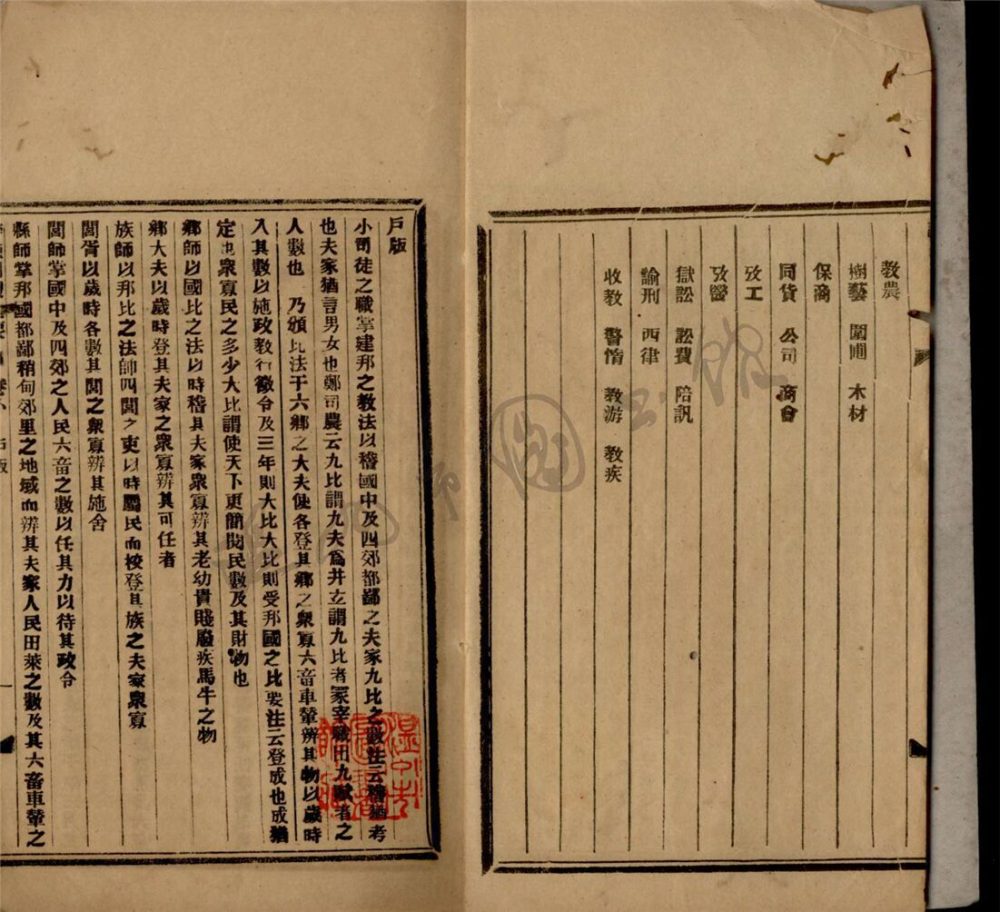 教農
樹藝 園圃 木材
保商
同貨 公司 商會
攷工
攷醫
獄訟 訟費 陪訊
諭刑 西律
收教 警惰 教游 教疾
戶版
小司徒之職掌建邦之教法以稽國中及四郊都鄙之夫家九比之數注云稽猶考
也夫家猶言男女也鄭司農云九比謂九夫爲井玄謂九比者冢宰職出九賦者之
人數也 乃頒比法于六鄉之大夫使各登其鄉之衆寡六畜車輦辨其物以歲時
入其數以施政教行徵令及三年則大比大比則受邦國之比要注云登成也成猶
定也衆寡民之多少大比謂使天下更簡閱民數及其財物也
鄉師以國比之法以時稽其夫家衆寡辨其老幼貴賤廢疾馬牛之物
鄉大夫以歲時登其夫家之衆寡辨其可任者
族師以邦比之法帥四閭之吏以時屬民而校登其族之夫家衆寡
閭胥以歲時各數其閭之衆寡辨其施舍
閭師掌國中及四郊之人民六畜之數以任其力以待其政令
縣師掌邦國都鄙稍甸郊里之地域而辨其夫家人民田萊之數及其六畜車輦之
戶版
一